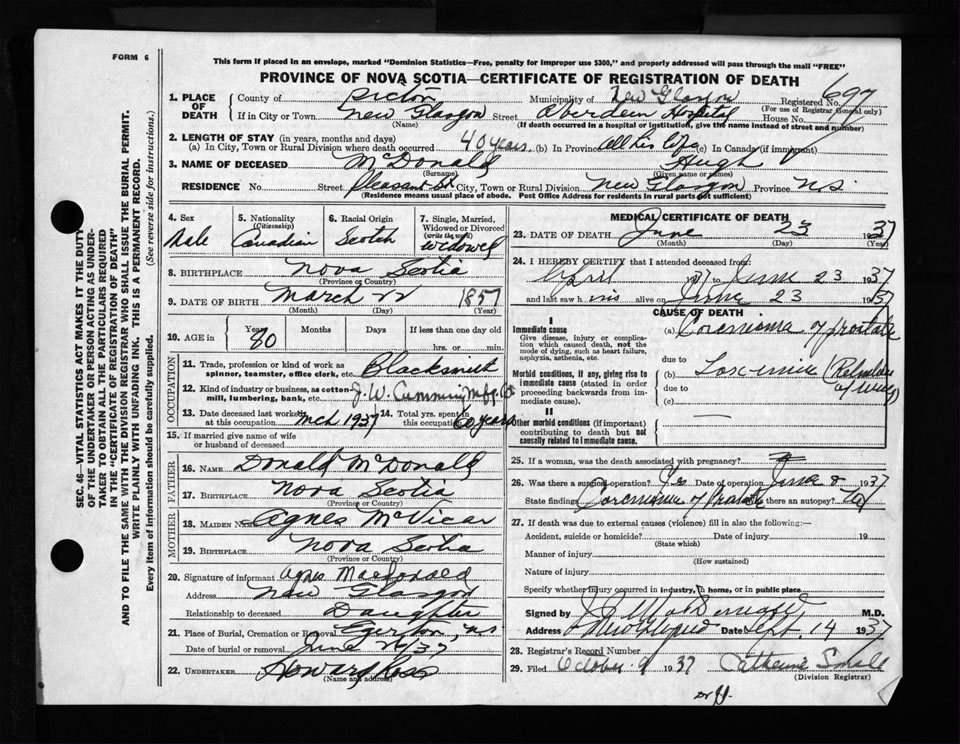 FORM 6
This form if placed in an envelope, marked "Dominion Statistics—Free, penalty for improper use $300," and properly addressed will pass through the mail "FREE"
PROVINCE OF NOVA SCOTIA—CERTIFICATE OF REGISTRATION OF DEATH
1. PLACE OF DEATH
County of Pictou Municipality of New Glasgow Registered No. 697
(For use of Registrar General only)
If in City or Town New Glasgow Street Aberdeen Hospital House No.
(Name) (If death occurred in a hospital or institution, give the name instead of street and number)
2. LENGTH OF STAY (in years, months and days)
(a) In City, Town or Rural Division where death occurred 40 years (b) In Province all his life (c) In Canada (if immigrant)
3. NAME OF DECEASED McDonald Hugh
(Surname) (Given name or names)
RESIDENCE No. Street Pleasant St. City, Town or Rural Division New Glasgow Province N.S.
(Residence means usual place of abode. Post Office Address for residents in rural parts not sufficient)
4. Sex
Male
5. Nationality
(Citizenship)
Canadian
6. Racial Origin
Scotch
7. Single, Married, Widowed or Divorced
(write the word)
Widowed
8. BIRTHPLACE Nova Scotia
(Province or Country)
9. DATE OF BIRTH March 1857
(Month) (Day) (Year)
10. AGE in
Years Months Days If less than one day old
80
hrs. or min.
OCCUPATION
11. Trade, profession or kind of work as spinner, teamster, office clerk, etc. Blacksmith
12. Kind of industry or business, as cotton-mill, lumbering, bank, etc. J. W. Cumming Mfg. Co
13. Date deceased last worked at this occupation Mch 1937
14. Total yrs. spent in this occupation 60 years
15. If married give name of wife or husband of deceased
FATHER
16. NAME Donald McDonald
17. BIRTHPLACE Nova Scotia
(Province or Country)
MOTHER
18. MAIDEN NAME Agnes McVicar
19. BIRTHPLACE Nova Scotia
(Province or Country)
20. Signature of informant Agnes MacDonald
Address New Glasgow
Relationship to deceased Daughter
21. Place of Burial, Cremation or Removal Egerton, N.S.
Date of burial or removal June 1937
22. UNDERTAKER Howard Ross
(Name and address)
MEDICAL CERTIFICATE OF DEATH
23. DATE OF DEATH June 23 1937
(Month) (Day) (Year)
24. I HEREBY CERTIFY that I attended deceased from:
April 1937 to June 23 1937
and last saw his alive on June 23 1937
CAUSE OF DEATH
I
Immediate cause
Give disease, injury or complication which caused death, not the mode of dying, such as heart failure, asphyxia, asthenia, etc.
(a) Carcinoma of prostate
due to
Morbid conditions, if any, giving rise to immediate cause (stated in order proceeding backwards from immediate cause).
(b) Toxemia (Retention of urine)
due to
(c)
II
Other morbid conditions (if important) contributing to death but not causally related to immediate cause.
25. If a woman, was the death associated with pregnancy?
26. Was there a surgical operation? Yes Date of operation June 8 1937
State findings Carcinoma of Prostate Was there an autopsy?
27. If death was due to external causes (violence) fill in also the following:—
Accident, suicide or homicide? Date of injury 19
(State which)
Manner of injury
(How sustained)
Nature of injury
Specify whether injury occurred in industry, in home, or in public place
Signed by M.D.
Address New Glasgow Date Sept. 14 1937
28. Registrar's Record Number
29. Filed October 9 1937 Catherine Small
(Division Registrar)
SEC. 46—VITAL STATISTICS ACT MAKES IT THE DUTY OF THE UNDERTAKER OR PERSON ACTING AS UNDERTAKER TO OBTAIN ALL THE PARTICULARS REQUIRED IN THE "CERTIFICATE OF REGISTRATION OF DEATH" AND TO FILE THE SAME WITH THE DIVISION REGISTRAR WHO SHALL ISSUE THE BURIAL PERMIT.
WRITE PLAINLY WITH UNFADING INK. THIS IS A PERMANENT RECORD.
Every item of information should be carefully supplied. (See reverse side for instructions.)